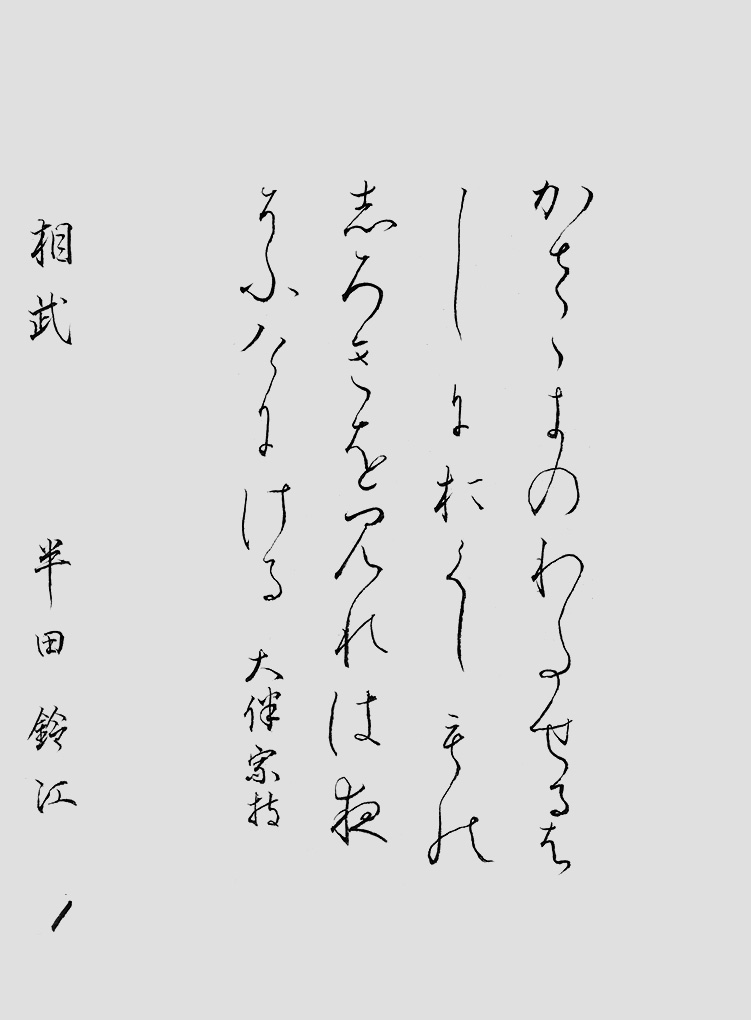 かさゝきのわたせるは
しにおくしもの
志ろきを見れは夜
そふけにける 大伴家持
相武 半田鈴江